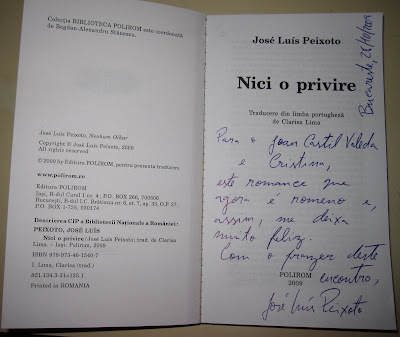 Colecția BIBLIOTECA POLIROM este coordonată
de Bogdan-Alexandru Stănescu.
José Luís Peixoto, Nenhum Olhar
Copyright © José Luís Peixoto, 2000
All rights reserved.
© 2009 by Editura POLIROM, pentru prezenta traducere
www.polirom.ro
Editura POLIROM
Iași, B-dul Carol I nr. 4; P.O. BOX 266, 700506
București, B-dul I.C. Brătianu nr. 6, et. 7, ap. 33, O.P. 37;
P.O. BOX 1-728, 030174
Descrierea CIP a Bibliotecii Naționale a României:
PEIXOTO, JOSÉ LUÍS
Nici o privire / José Luís Peixoto; trad. de Clarisa
Lima. – Iași: Polirom, 2009
ISBN 978-973-46-1560-7
I. Lima, Clarisa (trad.)
821.134.3-31=135.1
Printed in ROMANIA
José Luís Peixoto
Nici o privire
Traducere din limba portugheză
de Clarisa Lima
Bucareste,
Para o Joan Castil Valeda
e Cristina,
este romance que
agora é romeno e,
assim, me deixa
muito feliz.
Com o prazer deste
encontro,
José Luís Peixoto
POLIROM
2009